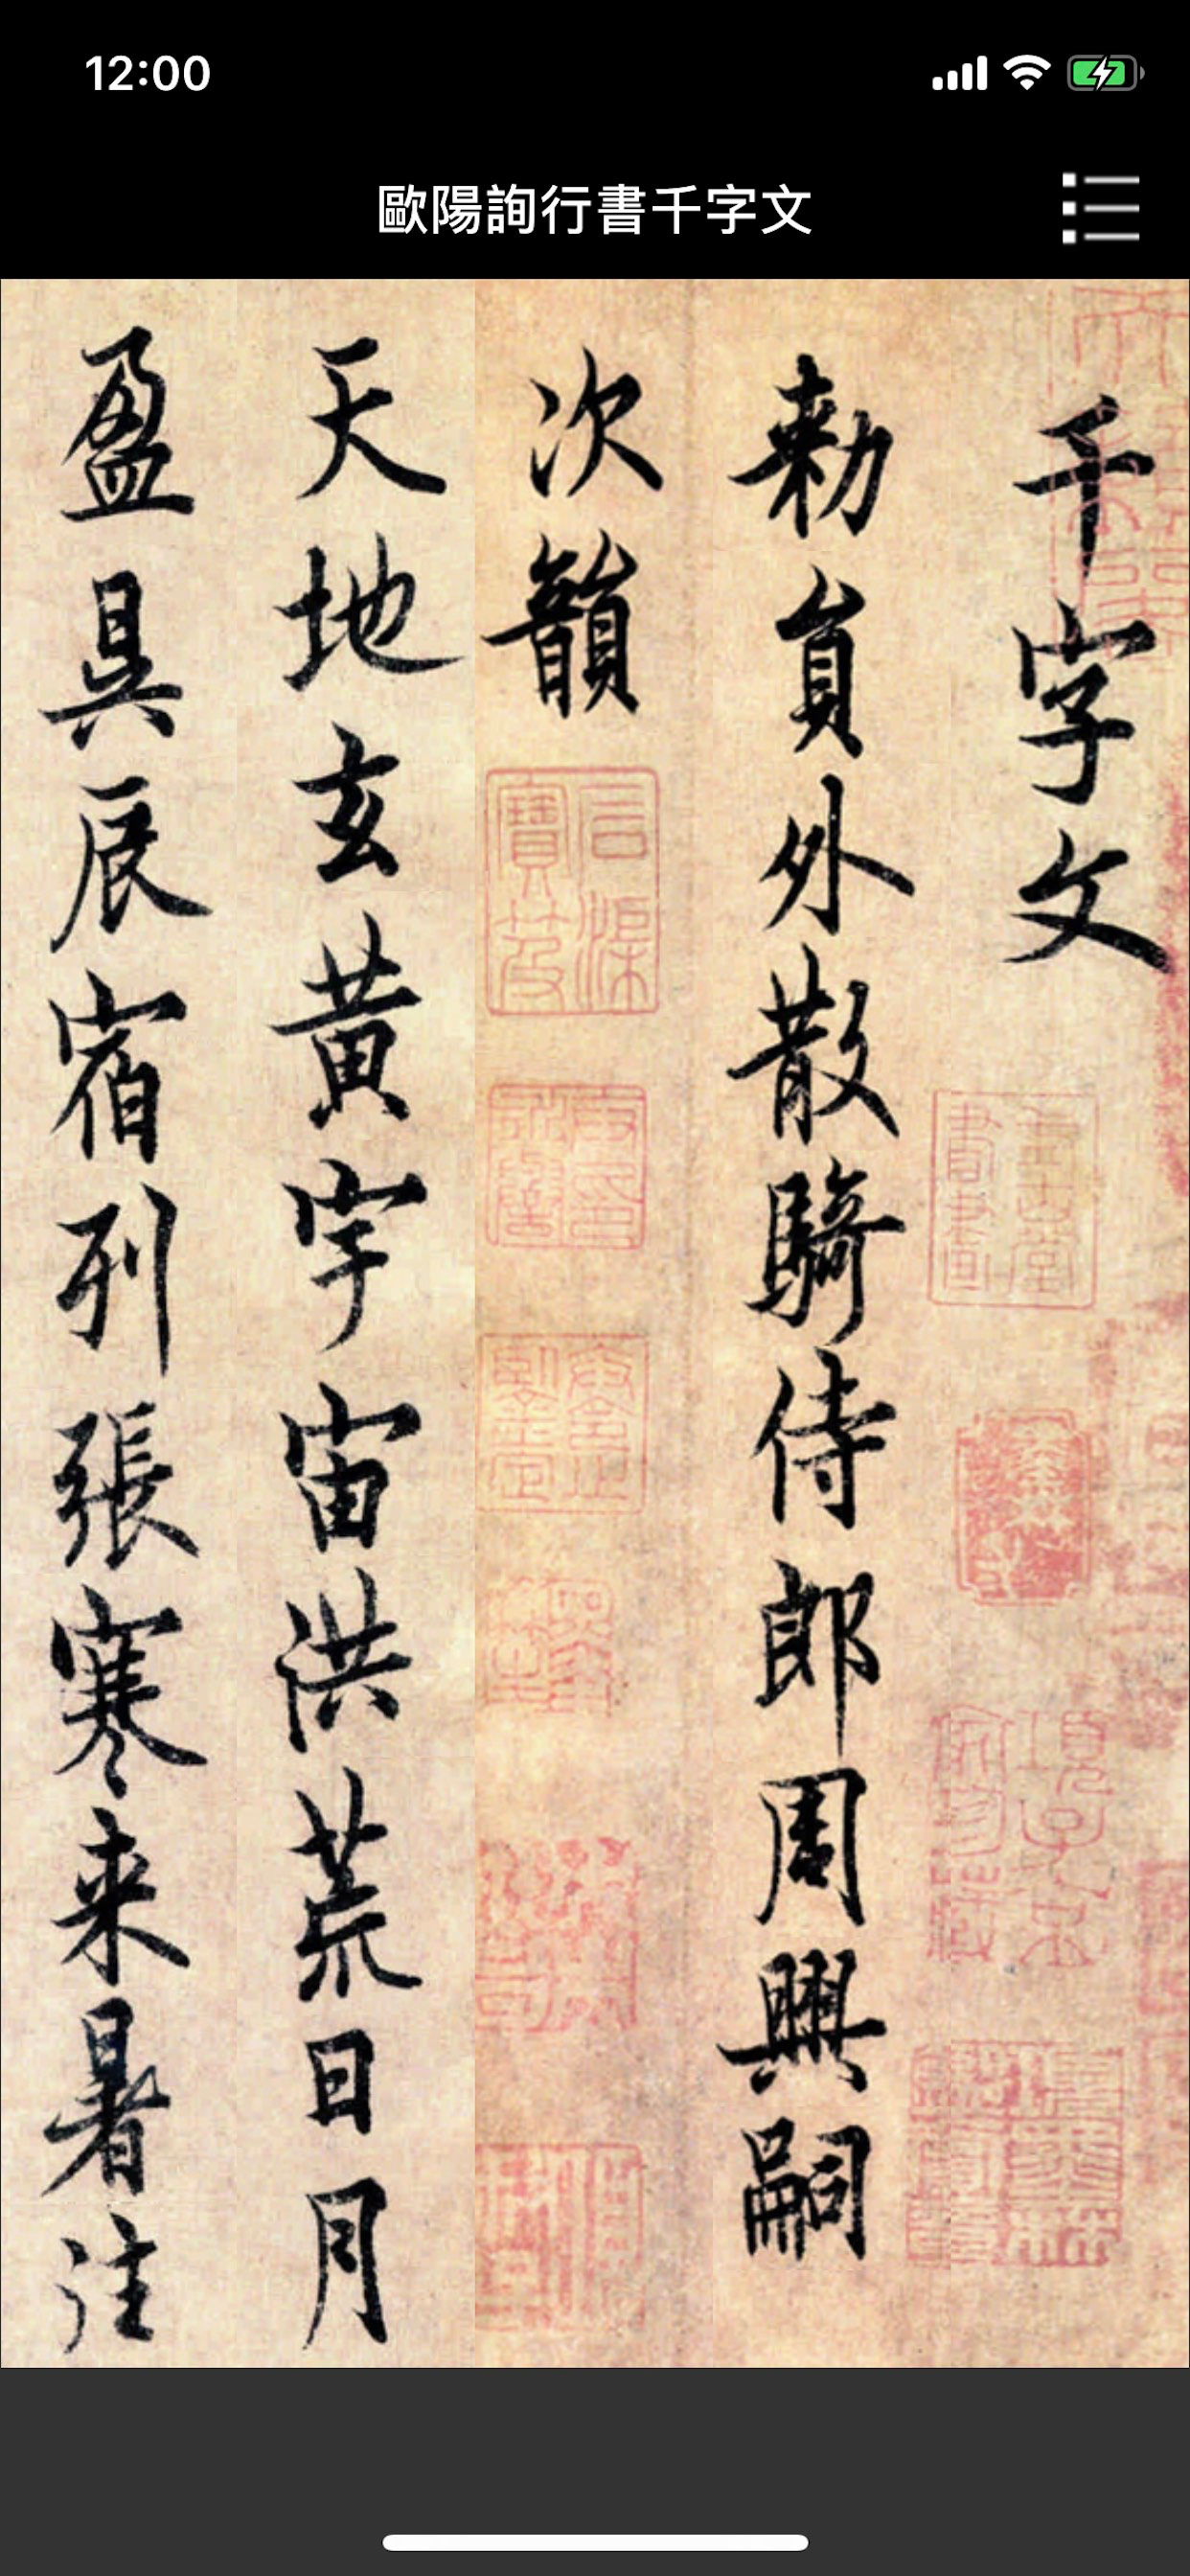 12:00
歐陽詢行書千字文
千字文
勑員外散騎侍郎周興嗣
次韻
石渠寶笈
天地玄黃宇宙洪荒日月
盈昃辰宿列張寒来暑往